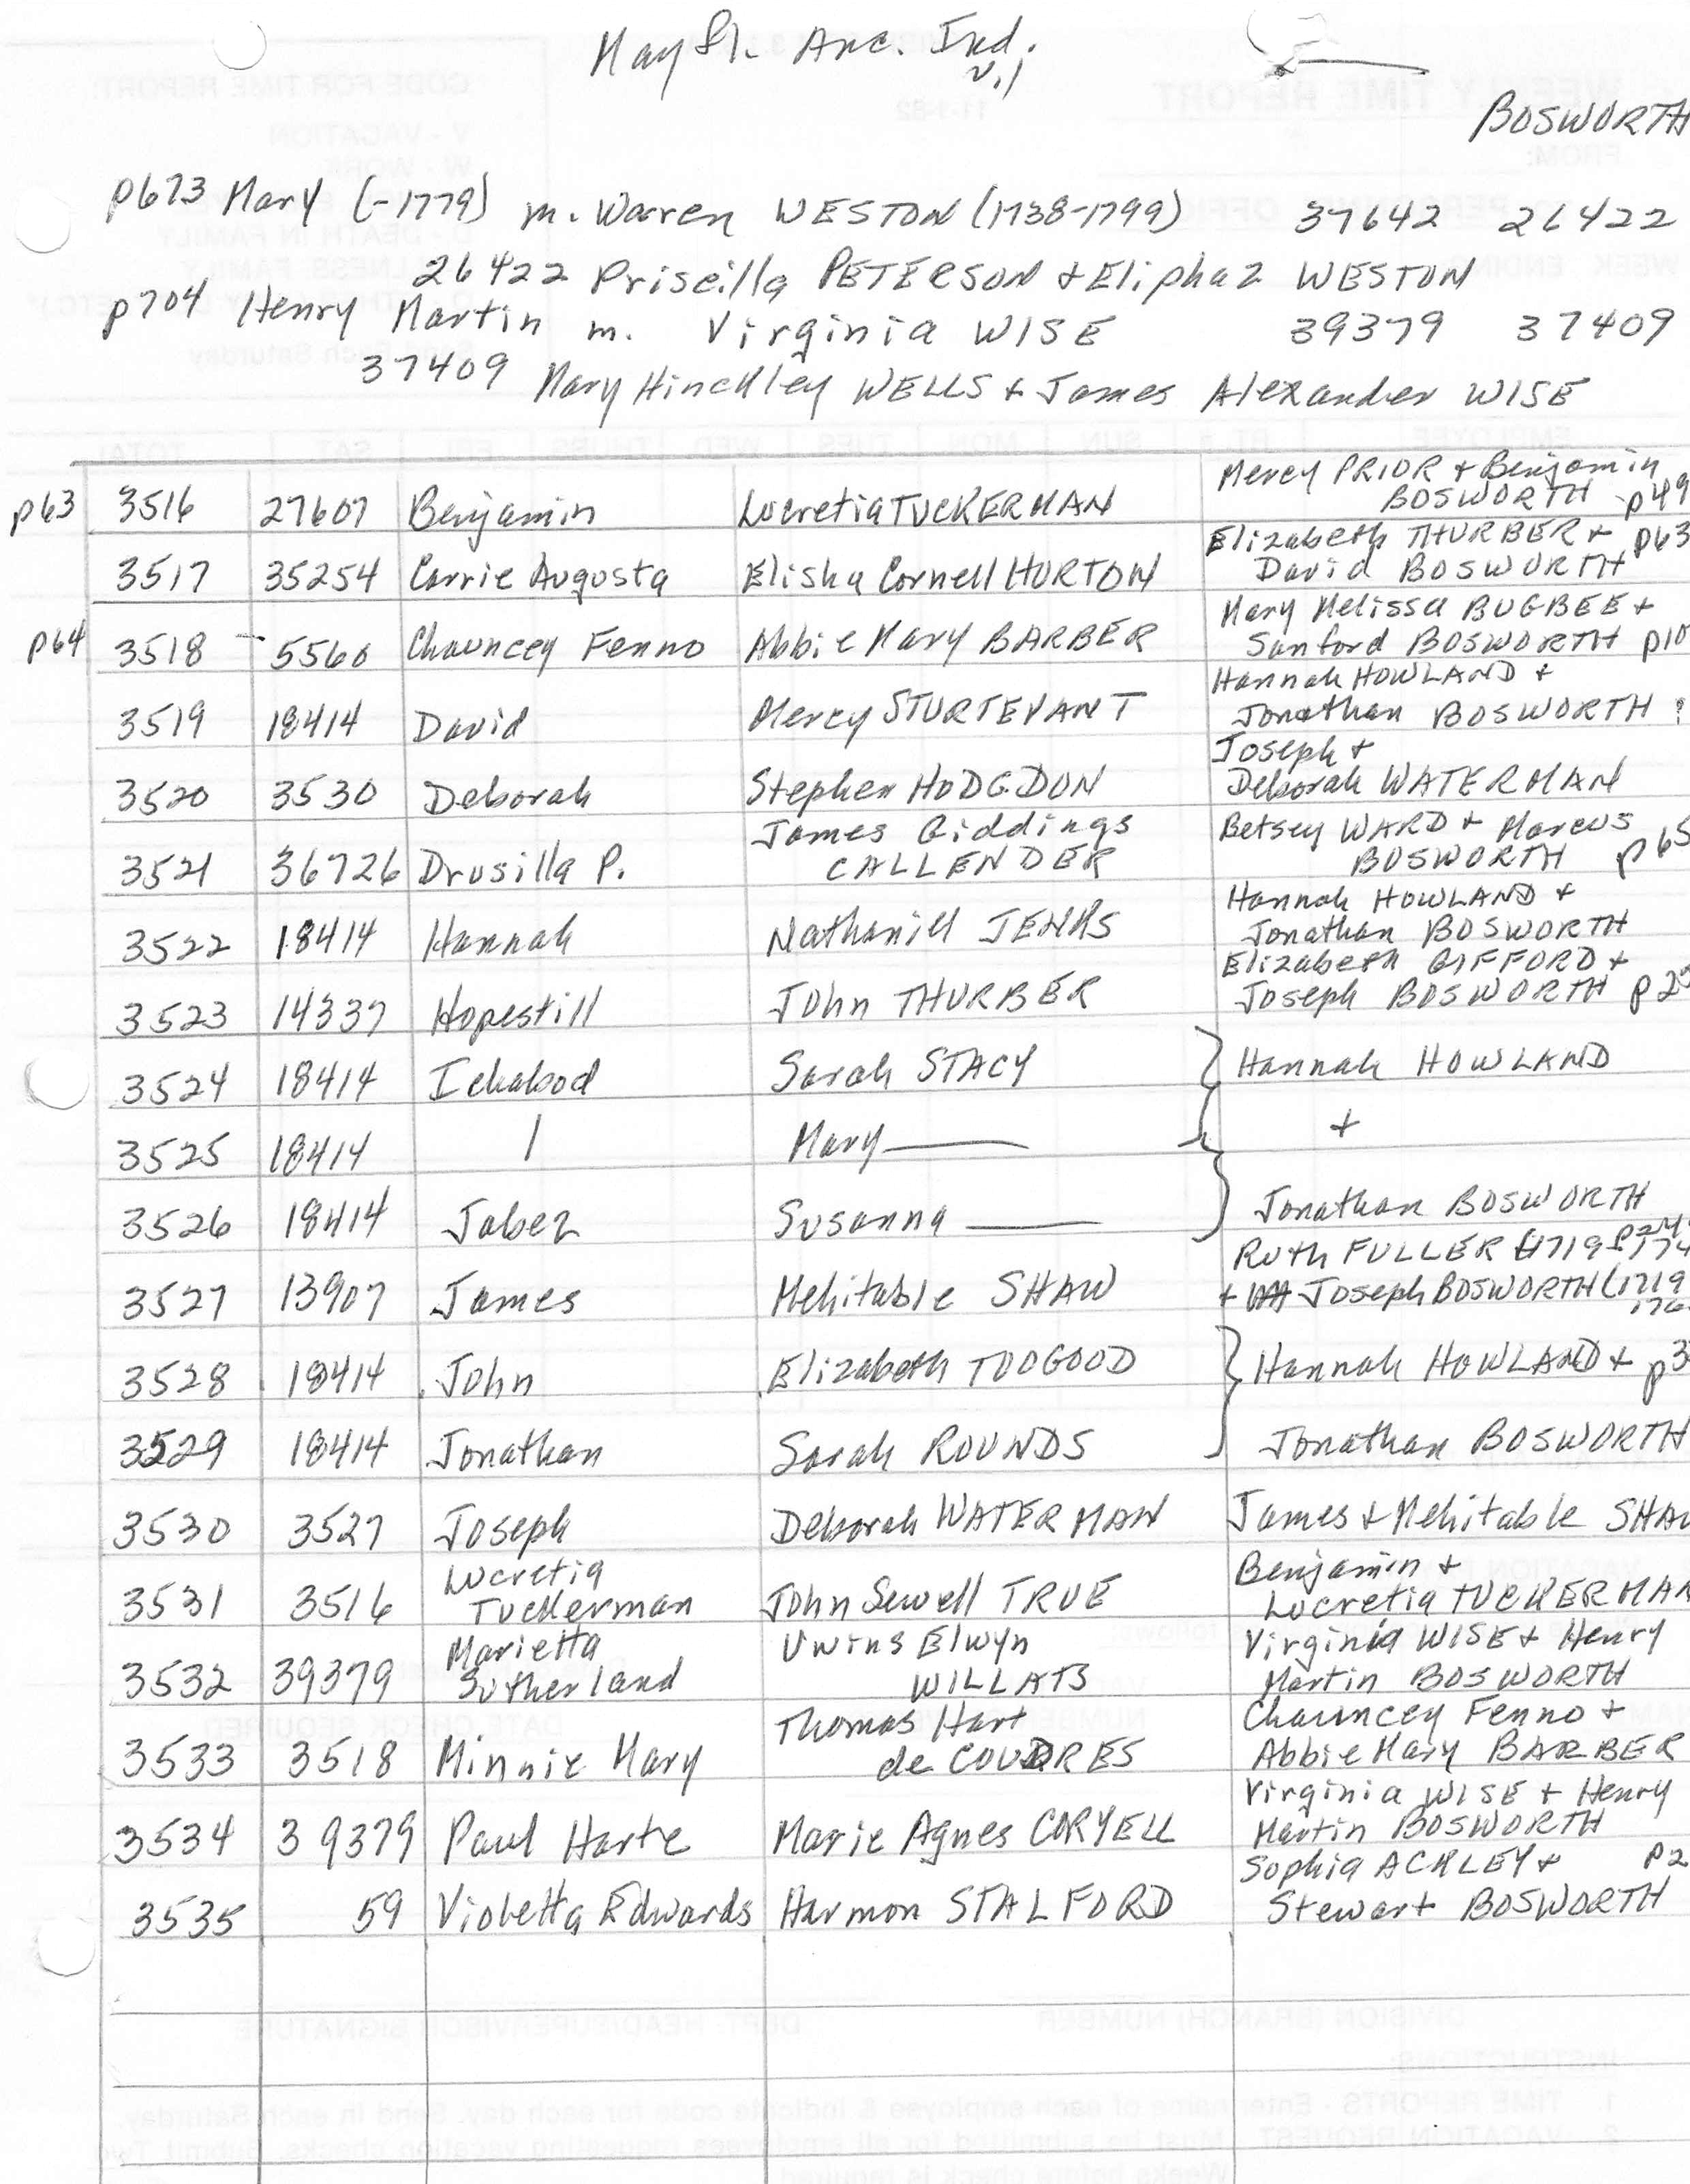 Mayfl. Anc. Ind.
v.1
BOSWORTH
p673 Mary (-1779) m. Warren WESTON (1738-1799) 37642 26422
26422 Priscilla PETERSON + Eliphaz WESTON
p704 Henry Martin m. Virginia WISE 39379 37409
37409 Mary Hinckley WELLS + James Alexander WISE
Mercy PRIOR + Benjamin
p63 3516 27607 Benjamin Lucretia TUCKERMAN BOSWORTH p49
Elizabeth THURBER + p63
3517 35254 Carrie Augusta Elisha Cornell HORTON David BOSWORTH
Mary Melissa BUGBEE +
p64 3518 5560 Chauncey Fenno Abbie Mary BARBER Sanford BOSWORTH p10
Hannah HOWLAND +
3519 18414 David Mercy STURTEVANT Jonathan BOSWORTH ?
Joseph +
3520 3530 Deborah Stephen HODGDON Deborah WATERMAN
James Giddings Betsey WARD + Marcus
3521 36726 Drusilla P. CALLENDER BOSWORTH p65
Hannah HOWLAND +
3522 18414 Hannah Nathaniel JENKS Jonathan BOSWORTH
Elizabeth GIFFORD +
3523 14337 Hopestill John THURBER Joseph BOSWORTH p2
3524 18414 Ichabod Sarah STACY Hannah HOWLAND
3525 18414 | Mary — +
3526 18414 Jabez Susanna — Jonathan BOSWORTH
Ruth FULLER (1719
3527 13907 James Mehitable SHAW + Joseph BOSWORTH (1719
3528 18414 John Elizabeth TOOGOOD Hannah HOWLAND + p3
3529 18414 Jonathan Sarah ROUNDS Jonathan BOSWORTH
3530 3527 Joseph Deborah WATERMAN James + Mehitable SHAW
Lucretia Benjamin +
3531 3516 Tuckerman John Sewell TRUE Lucretia TUCKERMAN
Marietta Uwins Elwyn Virginia WISE + Henry
3532 39379 Sutherland WILLATS Martin BOSWORTH
Thomas Hart Chauncey Fenno +
3533 3518 Minnie Mary de COUDRES Abbie Mary BARBER
Virginia WISE + Henry
3534 39379 Paul Harte Marie Agnes CORYELL Martin BOSWORTH
Sophia ACKLEY + p2
3535 59 Violetta Edwards Harmon STALFORD Stewart BOSWORTH